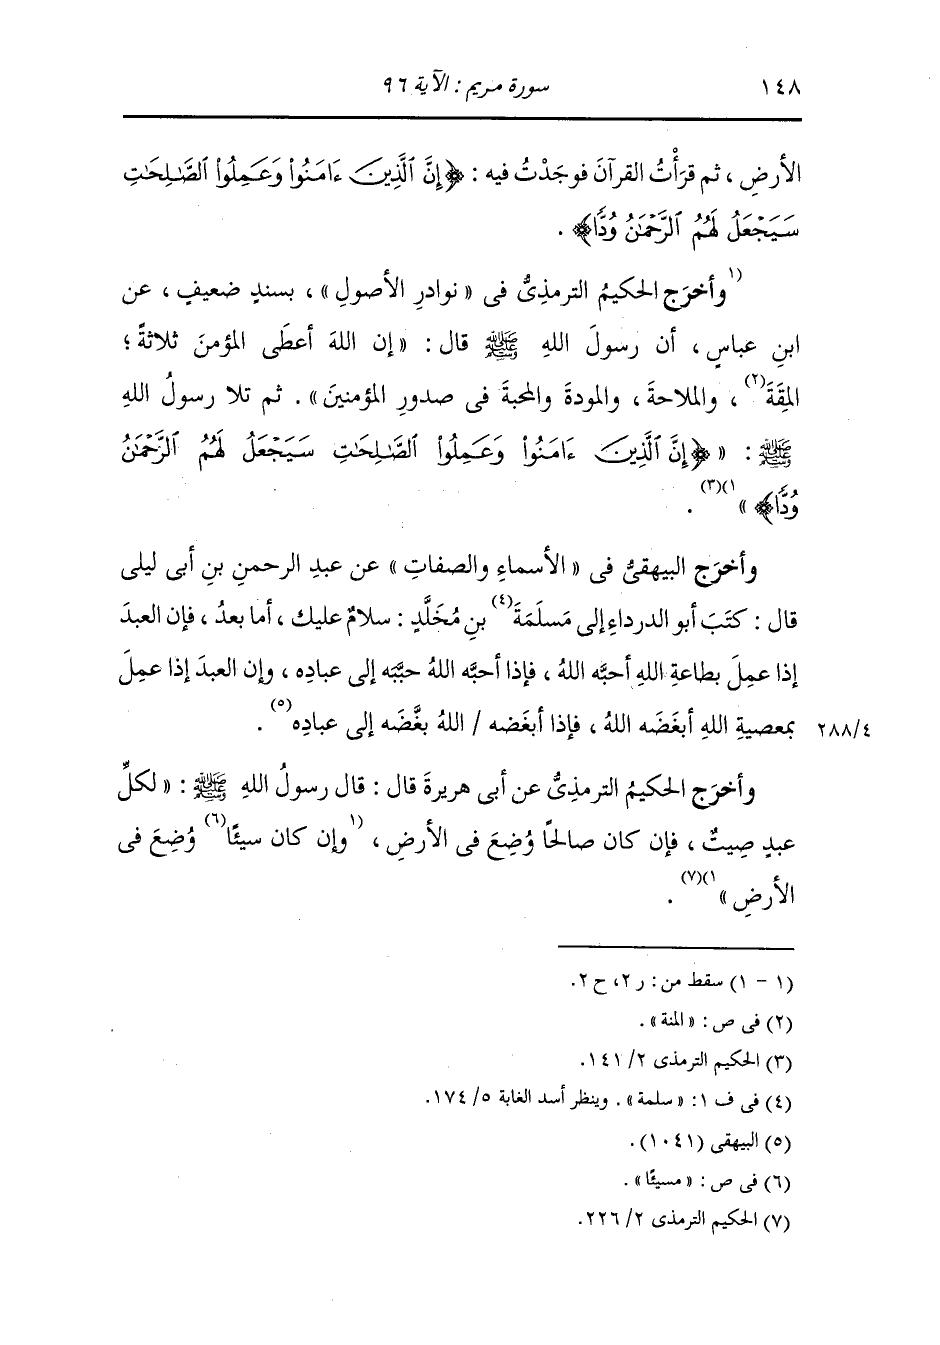 ١٤٨ سورة مريم : الآية ٩٦
الأرضِ ، ثم قرَأْتُ القرآنَ فوجَدْتُ فيه : ﴿إِنَّ ٱلَّذِينَ ءَامَنُوا۟ وَعَمِلُوا۟ ٱلصَّـٰلِحَـٰتِ
سَيَجْعَلُ لَهُمُ ٱلرَّحْمَـٰنُ وُدًّا﴾ .
(١وأخرَج الحكيمُ الترمذِىُّ فى « نوادرِ الأصولِ » ، بسندٍ ضعيفٍ ، عن
ابنِ عباسٍ ، أن رسولَ اللهِ ﷺ قال : « إن اللهَ أعطَى المؤمنَ ثلاثةً ؛
المِقَةَ(٢) ، والملاحةَ ، والمودةَ والمحبةَ فى صدورِ المؤمنين » . ثم تلا رسولُ اللهِ
ﷺ : « ﴿إِنَّ ٱلَّذِينَ ءَامَنُوا۟ وَعَمِلُوا۟ ٱلصَّـٰلِحَـٰتِ سَيَجْعَلُ لَهُمُ ٱلرَّحْمَـٰنُ
وُدًّا﴾ »١)(٣) .
وأخرَج البيهقىُّ فى « الأسماءِ والصفاتِ » عن عبدِ الرحمنِ بنِ أبى ليلى
قال : كتَبَ أبو الدرداءِ إلى مَسلَمَةَ(٤) بنِ مُخَلَّدٍ : سلامٌ عليك ، أما بعدُ ، فإن العبدَ
إذا عمِلَ بطاعةِ اللهِ أحبَّه اللهُ ، فإذا أحبَّه اللهُ حبَّبَه إلى عبادِه ، وإن العبدَ إذا عمِلَ
٢٨٨/٤ بمعصيةِ اللهِ أبغَضَه اللهُ ، فإذا أبغَضه / اللهُ بغَّضَه إلى عبادِه(٥) .
وأخرَج الحكيمُ الترمذِىُّ عن أبى هريرةَ قال : قال رسولُ اللهِ ﷺ : « لكلِّ
عبدٍ صِيتٌ ، فإن كان صالحًا وُضِعَ فى الأرضِ ، (١وإن كان سيئًا(٦) وُضِعَ فى
الأرضِ »١)(٧) .
(١ - ١) سقط من : ر ٢، ح ٢.
(٢) فى ص : « المنة » .
(٣) الحكيم الترمذى ٢/ ١٤١.
(٤) فى ف ١: « سلمة » . وينظر أسد الغابة ٥/ ١٧٤.
(٥) البيهقى (١٠٤١).
(٦) فى ص : « مسيئًا » .
(٧) الحكيم الترمذى ٢/ ٢٢٦.